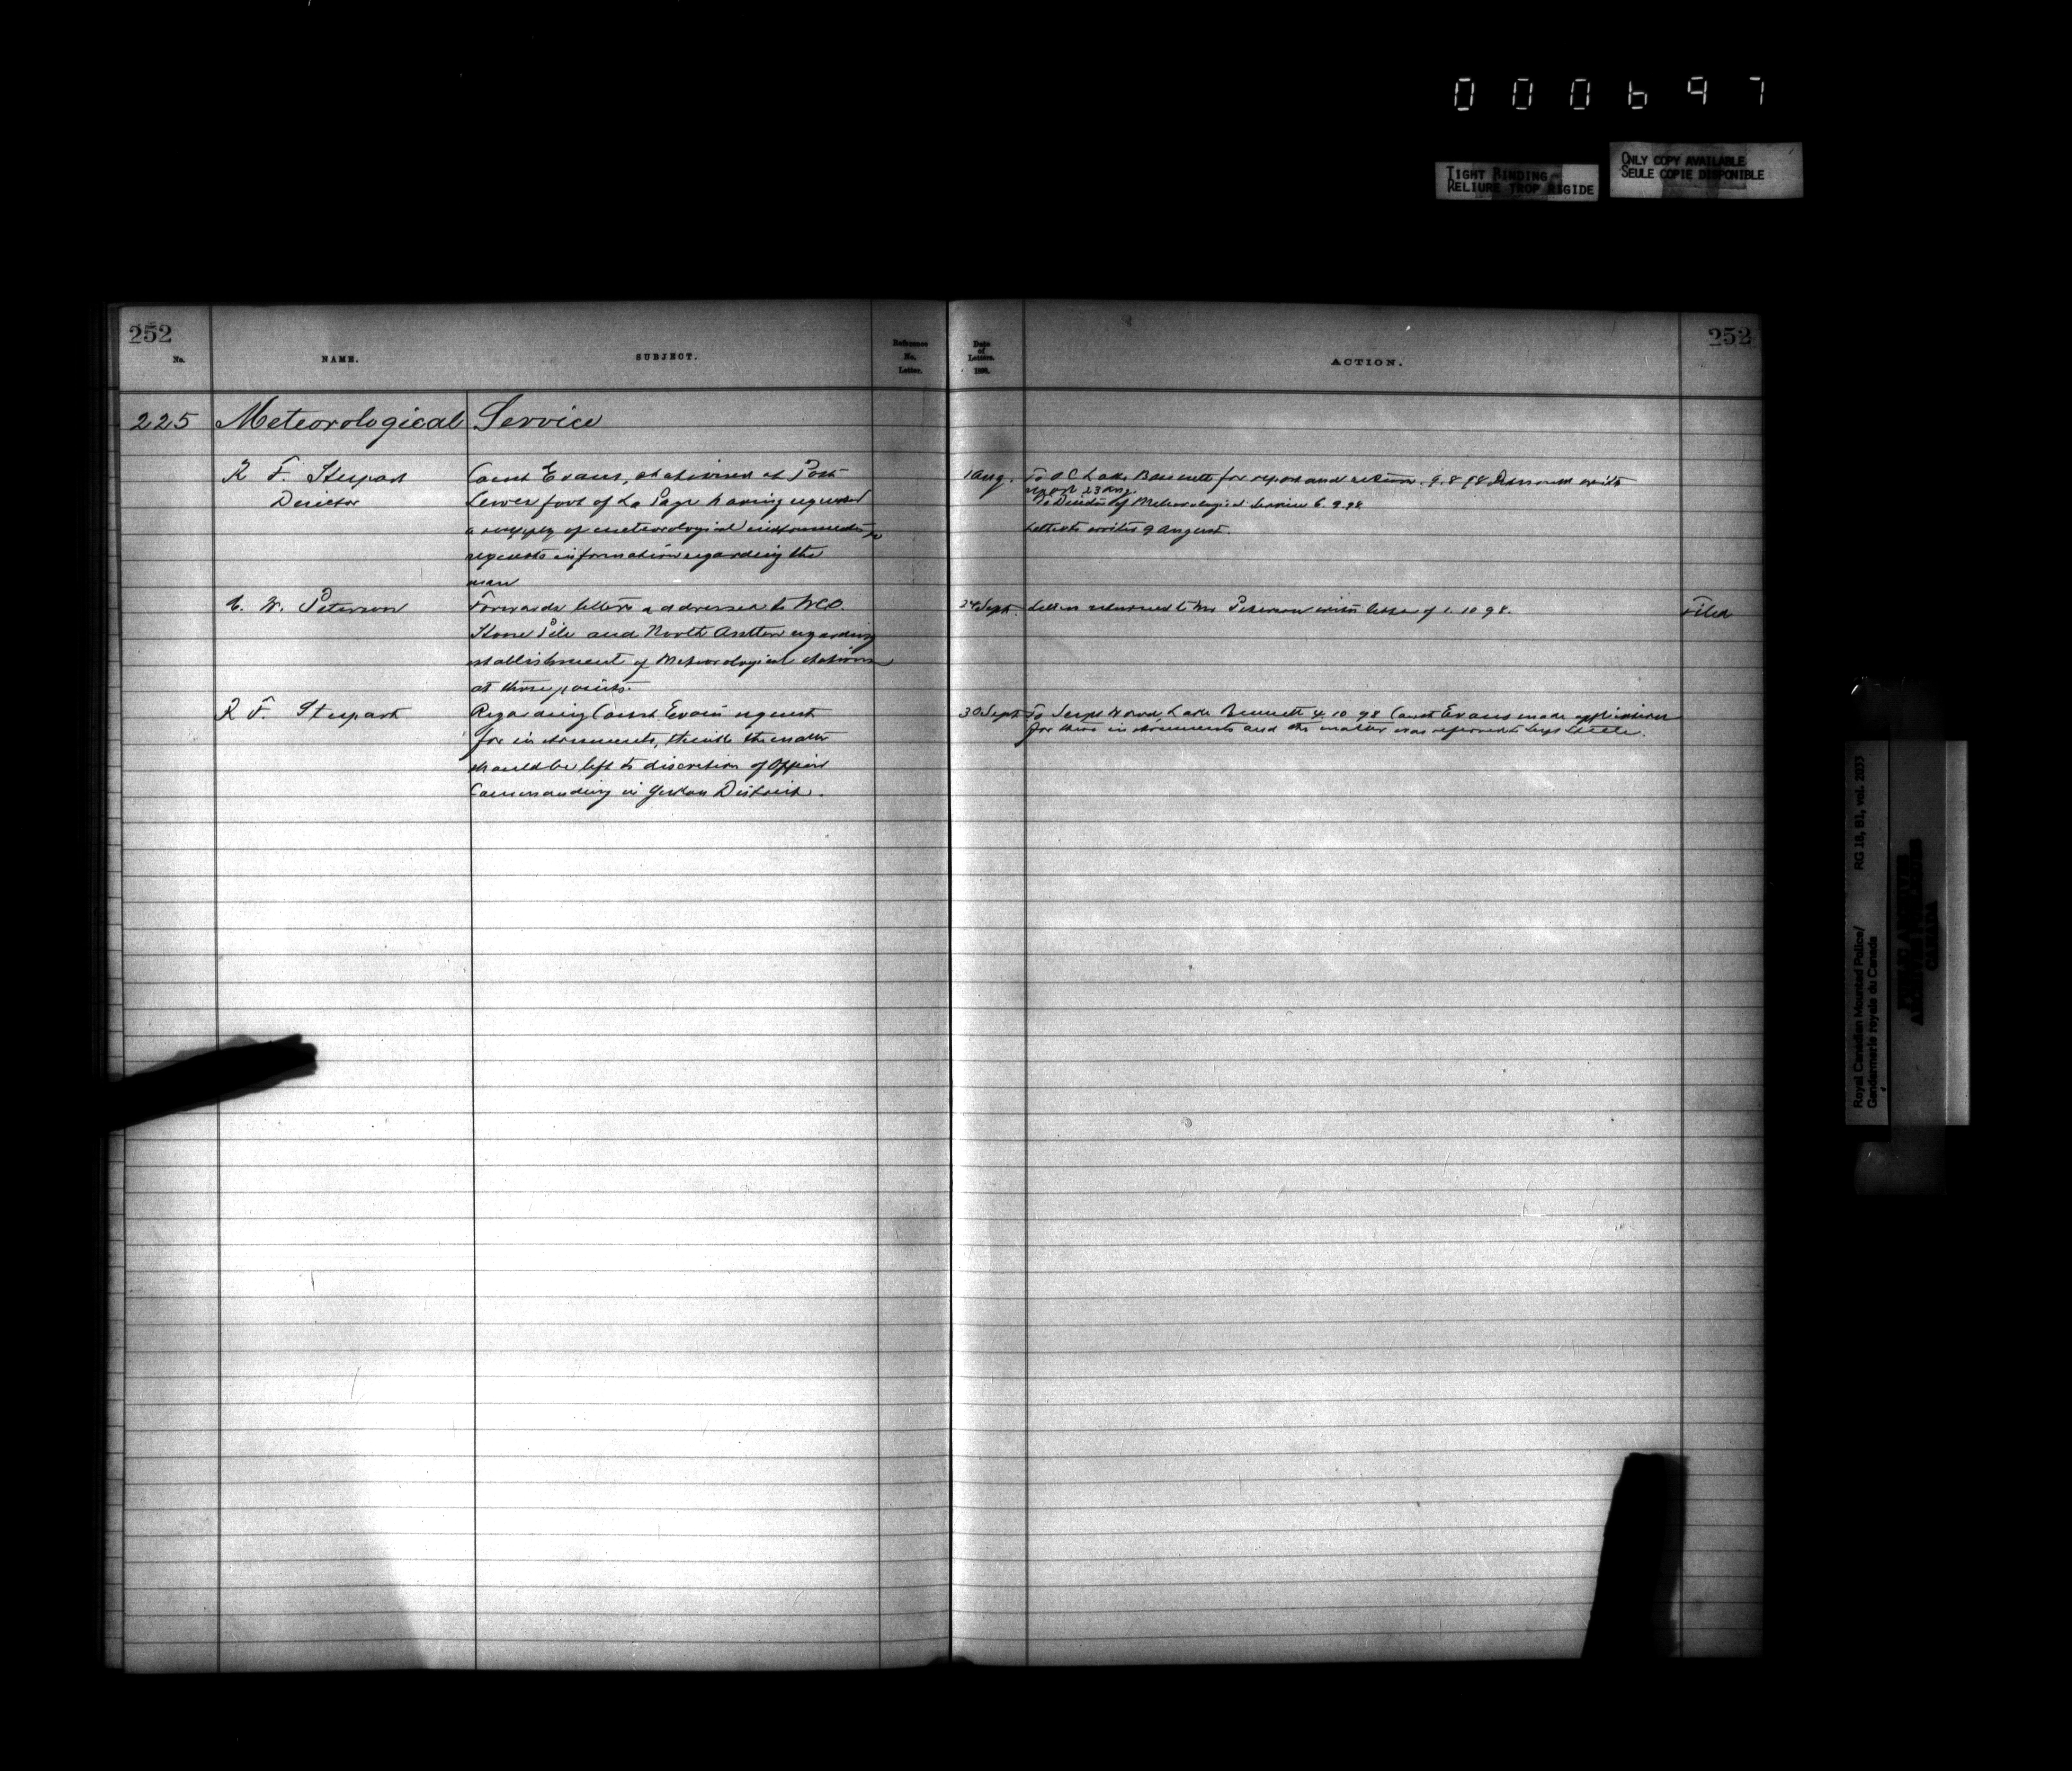 000697
TIGHT BINDING
RELIURE TROP RIGIDE
ONLY COPY AVAILABLE
SEULE COPIE DISPONIBLE
252
No.
NAME.
SUBJECT.
Reference
No.
Letter.
Date
of
Letters.
189
ACTION.
252
225 Meteorological Service
R F. Stupart
Director
Const Evans, stationed at Post
Lower foot of La Page having requested
a supply of meteorological instruments
requests information regarding the
man
1 Aug. To O C Lake Bennett for report and return. 9.8.98 returned with
report 23 Aug.
To Director of Meteorological Service 6.9.98
Letter written 9 August.
W. Peterson
Forwards letters addressed to NCO.
Stone Pile and North regarding
establishment of Meteorological stations
at those points.
Sept. Letters returned to Mr Peterson with letter of 1.10 98.
Filed
R F. Stupart
Regarding Const Evans request
for instruments, thinks the matter
should be left to discretion of Officer
Commanding in Yukon District.
30 Sept To Supt Wood, Lake Bennett 4 10 98 Const Evans made application
for these instruments and the matter was referred to Supt Steele.
Royal Canadian Mounted Police/
Gendarmerie royale du Canada
RG 18, B1, vol. 2033
PUBLIC ARCHIVES
ARCHIVES PUBLIQUES
CANADA